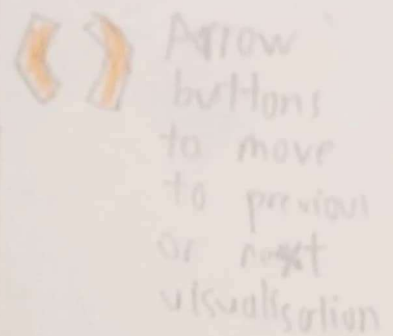 Arrow
buttons
to move
to previous
or next
visualisation